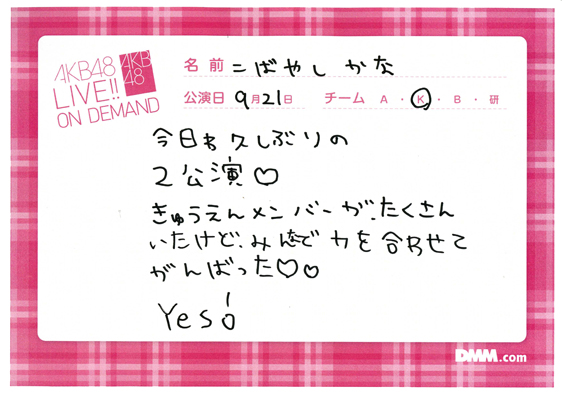 AKB48
LIVE!!
ON DEMAND
AKB
48
名前 こばやし かな
公演日 9月21日 チーム A・K・B・研
今日も久しぶりの
2公演♡
きゅうえんメンバーが、たくさん
いたけど、みんなで力を合わせて
がんばった♡♡
Yes!
DMM.com